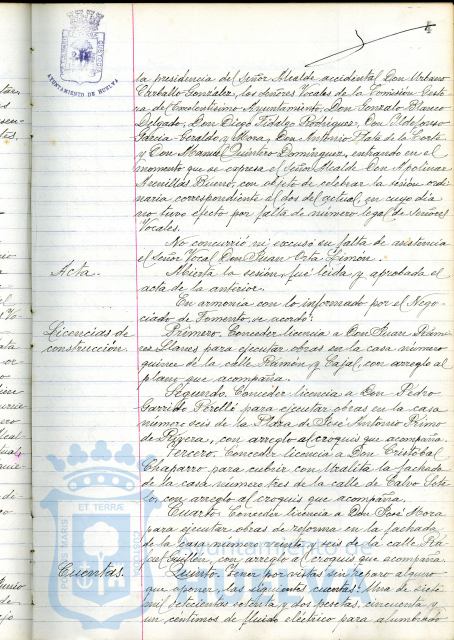 AYUNTAMIENTO DE HUELVA
la presidencia del Señor Alcalde accidental Don Urbano
Carballo González, los Señores Vocales de la Comisión Gesto
ra del Excelentísimo Ayuntamiento, Don Gonzalo Blanco
Delgado, Don Diego Fidalgo Rodríguez, Don Ildefonso
García-Geraldo y Mora, Don Antonio Plata de la Corte
y Don Manuel Quintero Domínguez, entrando en el
momento que se expresa el Señor Alcalde Don Apolinar
Arenillas Bueno, con objeto de celebrar la sesión ordi
naria correspondiente al dos del actual, en cuyo día
no tuvo efecto por falta de número legal de Señores
Vocales.
No concurrió ni excusó su falta de asistencia
el Señor Vocal Don Juan Orta Limón.
Acta.
Abierta la sesión, fué leída y aprobada el
acta de la anterior.
En armonía con lo informado por el Nego-
ciado de Fomento, se acordó:
Licencias de
construcción.
Primero. Conceder licencia a Don Juan
Llanes para ejecutar obras en la casa número
quince de la calle Ramón y Cajal, con arreglo al
plano que acompaña.
Segundo. Conceder licencia a Don Pedro
Garrido Perelló para ejecutar obras en la casa
número seis de la Plaza de José Antonio Primo
de Rivera, con arreglo al croquis que acompaña.
Tercero. Conceder licencia a Don Cristóbal
Chaparro para cubrir con Uralita la fachada
de la casa número tres de la calle de Calvo Sote
lo, con arreglo al croquis que acompaña.
Cuarto. Conceder licencia a Don José Mora
para ejecutar obras de reforma en la fachada
de la casa número veinte y seis de la calle Ra
con arreglo al croquis que acompaña.
Cuentas.
Quinto. Tener por vistas sin reparo alguno
que oponer, las siguientes cuentas: Una de siete
mil setecientas setenta y dos pesetas, cincuenta y
un céntimos de fluido eléctrico para alumbrado
PORTUS MARIS ET TERRAE CUSTODIA
Ayuntamiento de